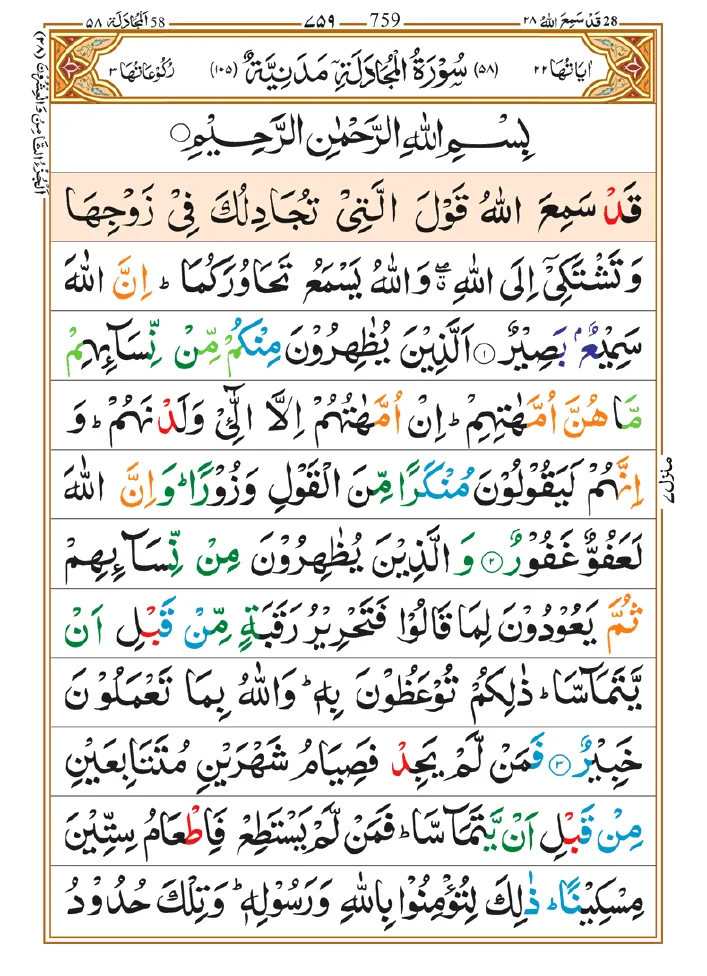 58 اَلْمُجَادَلَة ٥٨
759 ٧٥٩
28 قَدْ سَمِعَ اللّٰهُ ٢٨
اٰیَاتُهَا ٢٢
(٥٨) سُوْرَةُ الْمُجَادَلَةِ مَدَنِيَّةٌ (١٠٥)
رُكُوْعَاتُهَا ٣
اَلْجُزْءُ الثَّامِنُ وَالْعِشْرُوْنَ (٢٨)
بِسْمِ اللّٰهِ الرَّحْمٰنِ الرَّحِيْمِ
قَدْ سَمِعَ اللّٰهُ قَوْلَ الَّتِيْ تُجَادِلُكَ فِيْ زَوْجِهَا
وَتَشْتَكِيْٓ اِلَى اللّٰهِ ۖ وَاللّٰهُ يَسْمَعُ تَحَاوُرَكُمَا ؕ اِنَّ اللّٰهَ
سَمِيْعٌۢ بَصِيْرٌ ١ اَلَّذِيْنَ يُظٰهِرُوْنَ مِنْكُمْ مِّنْ نِّسَآىِٕهِمْ
مَّا هُنَّ اُمَّهٰتِهِمْ ؕ اِنْ اُمَّهٰتُهُمْ اِلَّا الّٰٓـِٔيْ وَلَدْنَهُمْ ؕ وَ
اِنَّهُمْ لَيَقُوْلُوْنَ مُنْكَرًا مِّنَ الْقَوْلِ وَزُوْرًا ؕ وَاِنَّ اللّٰهَ
لَعَفُوٌّ غَفُوْرٌ ٢ وَ الَّذِيْنَ يُظٰهِرُوْنَ مِنْ نِّسَآىِٕهِمْ
ثُمَّ يَعُوْدُوْنَ لِمَا قَالُوْا فَتَحْرِيْرُ رَقَبَةٍ مِّنْ قَبْلِ اَنْ
يَّتَمَآسَّا ؕ ذٰلِكُمْ تُوْعَظُوْنَ بِهٖ ؕ وَاللّٰهُ بِمَا تَعْمَلُوْنَ
خَبِيْرٌ ٣ فَمَنْ لَّمْ يَجِدْ فَصِيَامُ شَهْرَيْنِ مُتَتَابِعَيْنِ
مِنْ قَبْلِ اَنْ يَّتَمَآسَّا ؕ فَمَنْ لَّمْ يَسْتَطِعْ فَاِطْعَامُ سِتِّيْنَ
مِسْكِيْنًا ؕ ذٰلِكَ لِتُؤْمِنُوْا بِاللّٰهِ وَرَسُوْلِهٖ ؕ وَتِلْكَ حُدُوْدُ
منزل ٧